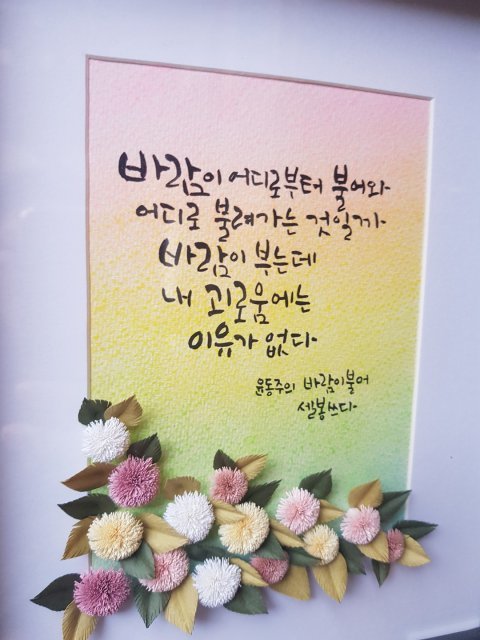 바람이 어디로부터 불어와
어디로 불려가는 것일까
바람이 부는데
내 괴로움에는
이유가 없다
윤동주의 바람이불어
샐봉쓰다